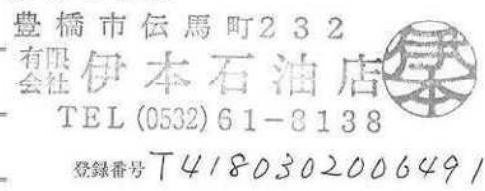 豊橋市伝馬町232
有限会社 伊本石油店 伊本
TEL (0532) 61-8138
登録番号 T4180302006491